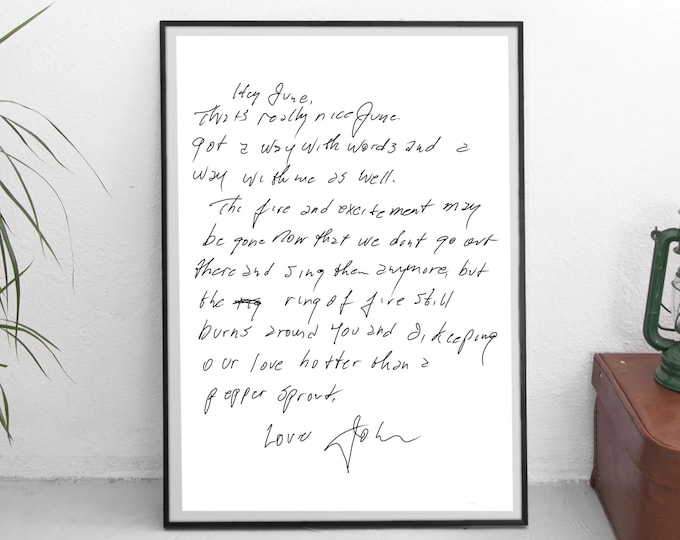 Hey June,
Thats really nice June.
Got a way with words and a
way with me as well.
The fire and excitement may
be gone now that we dont go out
there and sing them anymore, but
the ring of fire still
burns around you and I, keeping
our love hotter than a
pepper sprout.
Love John